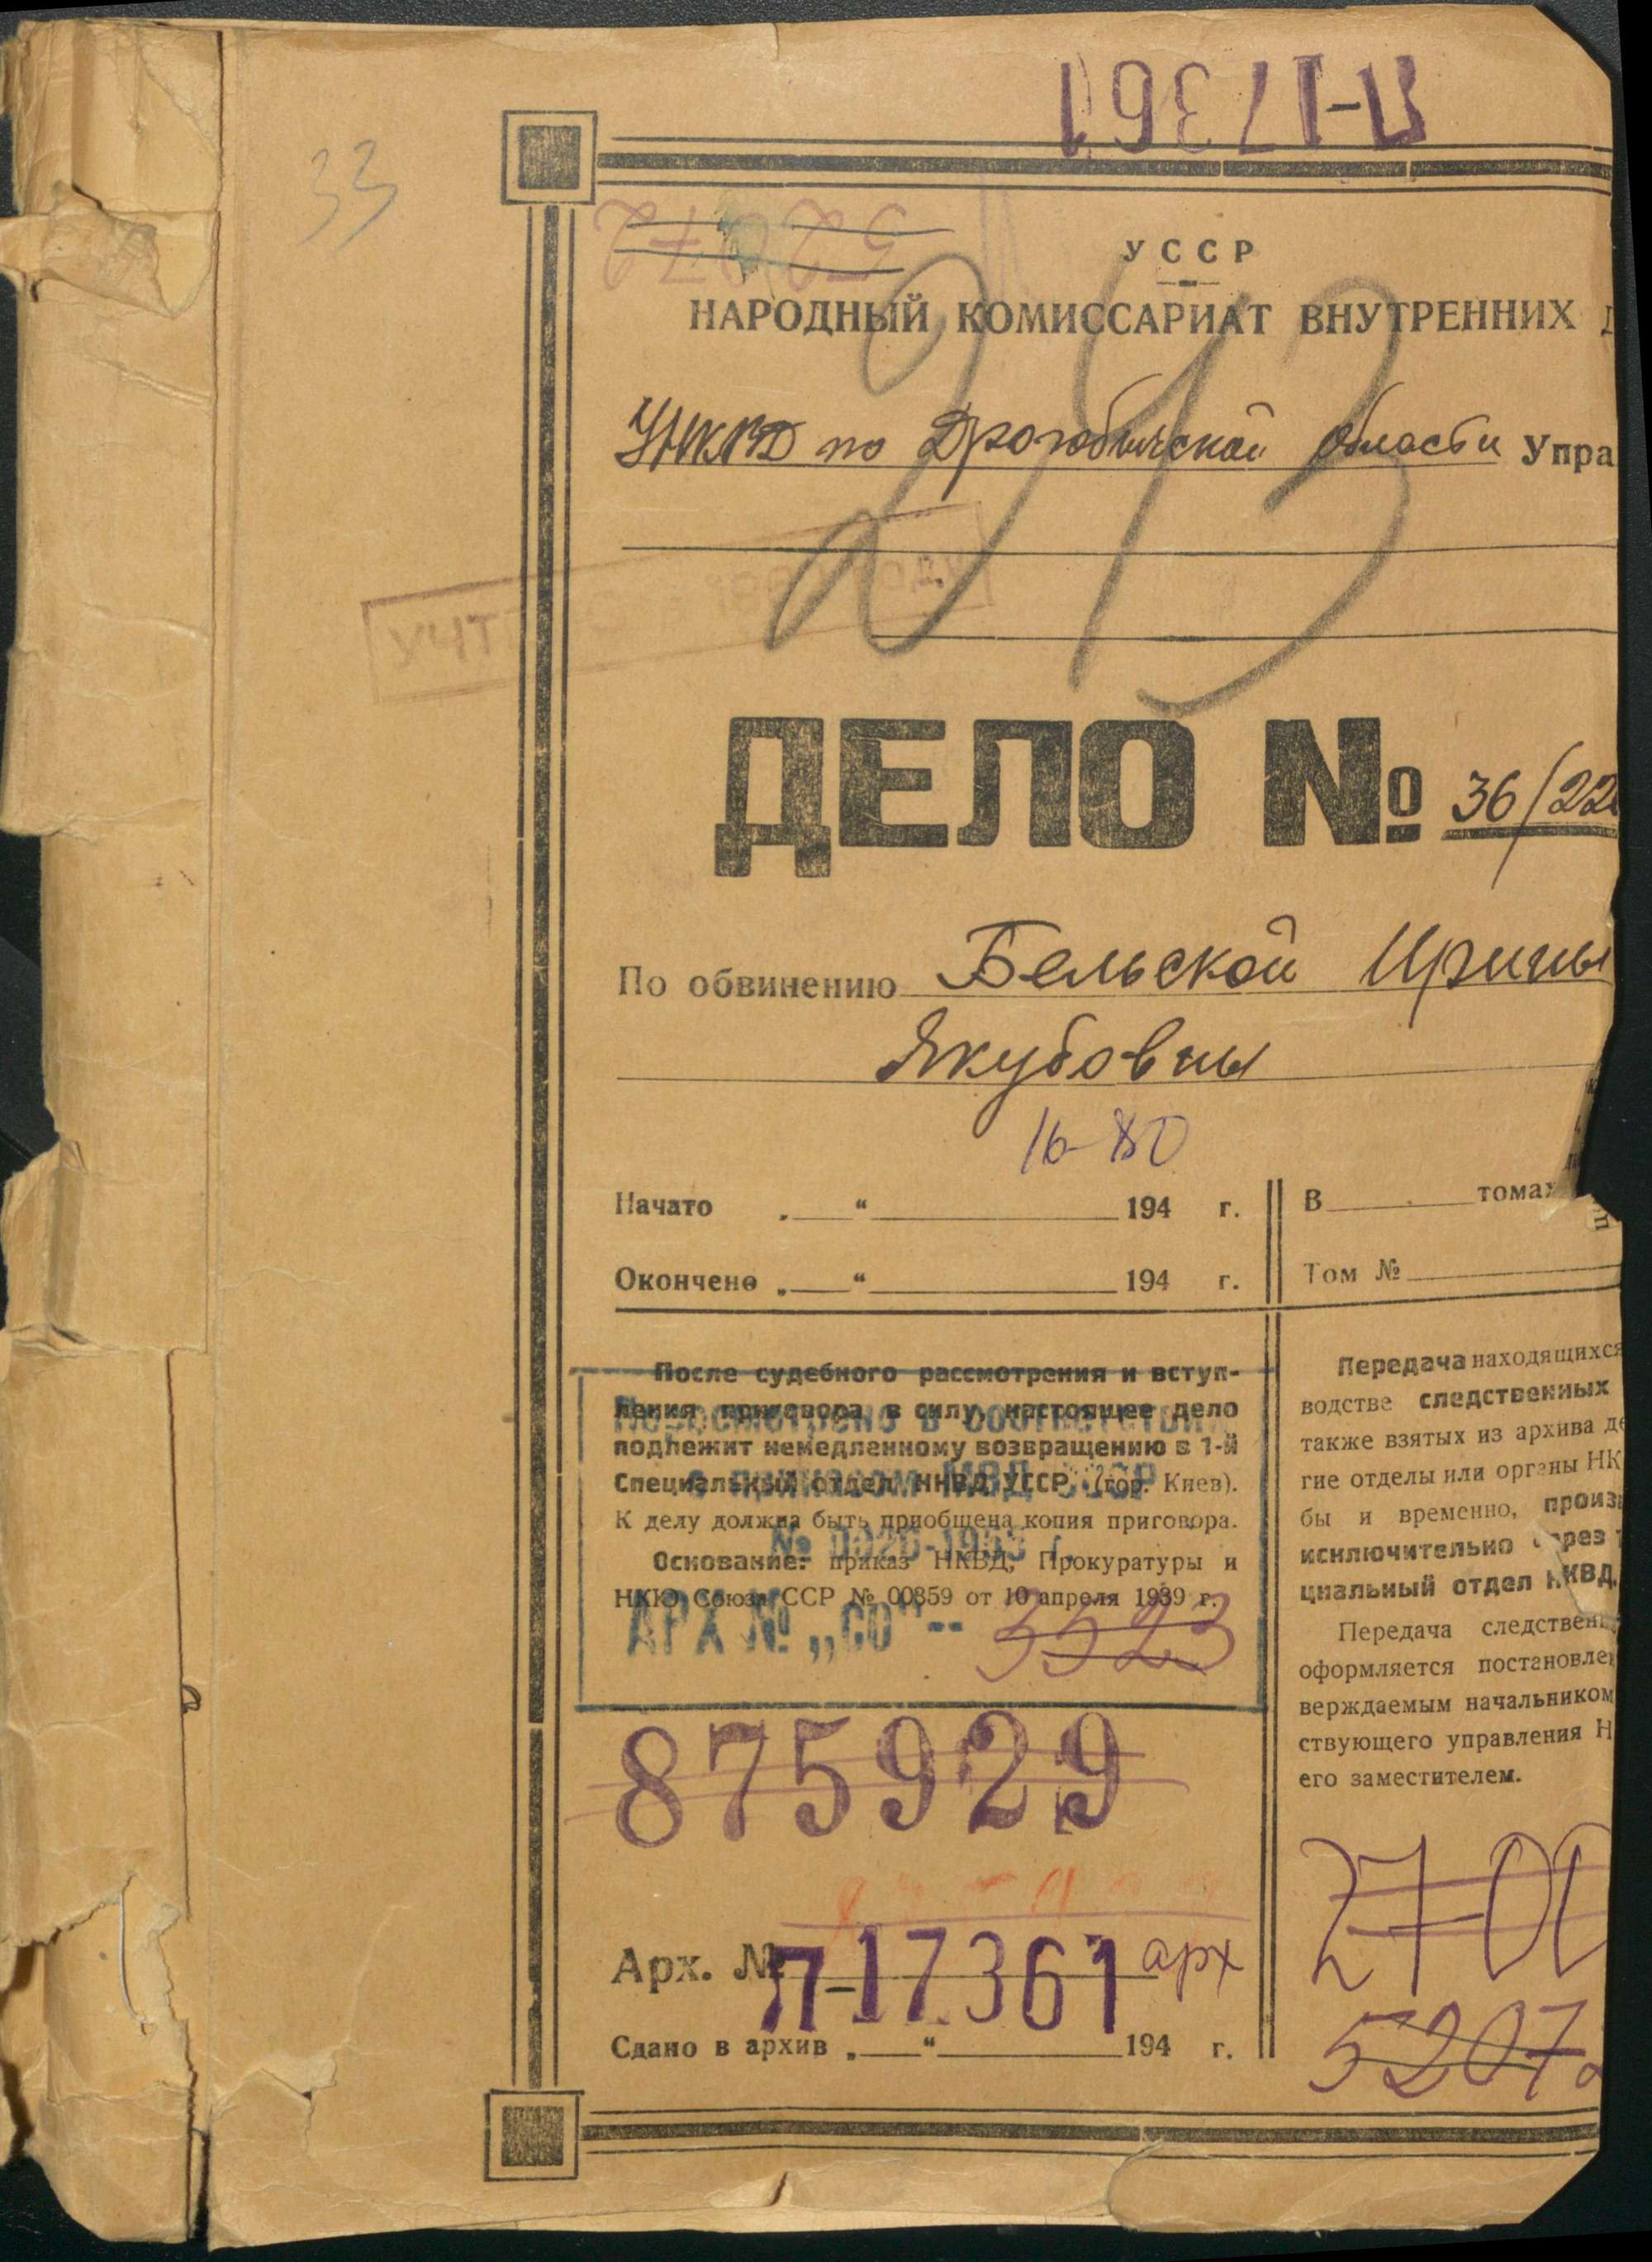 П-17361
33
52072
УССР
НАРОДНЫЙ КОМИССАРИАТ ВНУТРЕННИХ
УНКВД по Дрогобычской области Упра
213
УЧТ
ДЕЛО № 36/22
По обвинению Бельской Ирины
Якубовны
16-80
Начато „ “ 194 г.
В томах
Окончено „ “ 194 г.
Том №
После судебного рассмотрения и вступ-
ления приговора в силу, настоящее дело
подлежит немедленному возвращению в 1-й
Специальный отдел НКВД УССР (гор. Киев).
К делу должна быть приобщена копия приговора.
Основание: приказ НКВД, Прокуратуры и
НКЮ Союза ССР № 00359 от 10 апреля 1939 г.
Пересмотрено в соответствии
с приказом МВД СССР
№ 0026-1953 г.
АРХ № „СО“-- 5523
875929
Арх. № П-17361 арх
Сдано в архив „ “ 194 г.
Передача находящихся
водстве следственных
также взятых из архива де
гие отделы или органы НК
бы и временно, произв
исключительно через
циальный отдел НКВД.
Передача следствен
оформляется постановле
верждаемым начальником
ствующего управления Н
его заместителем.
2700
52072